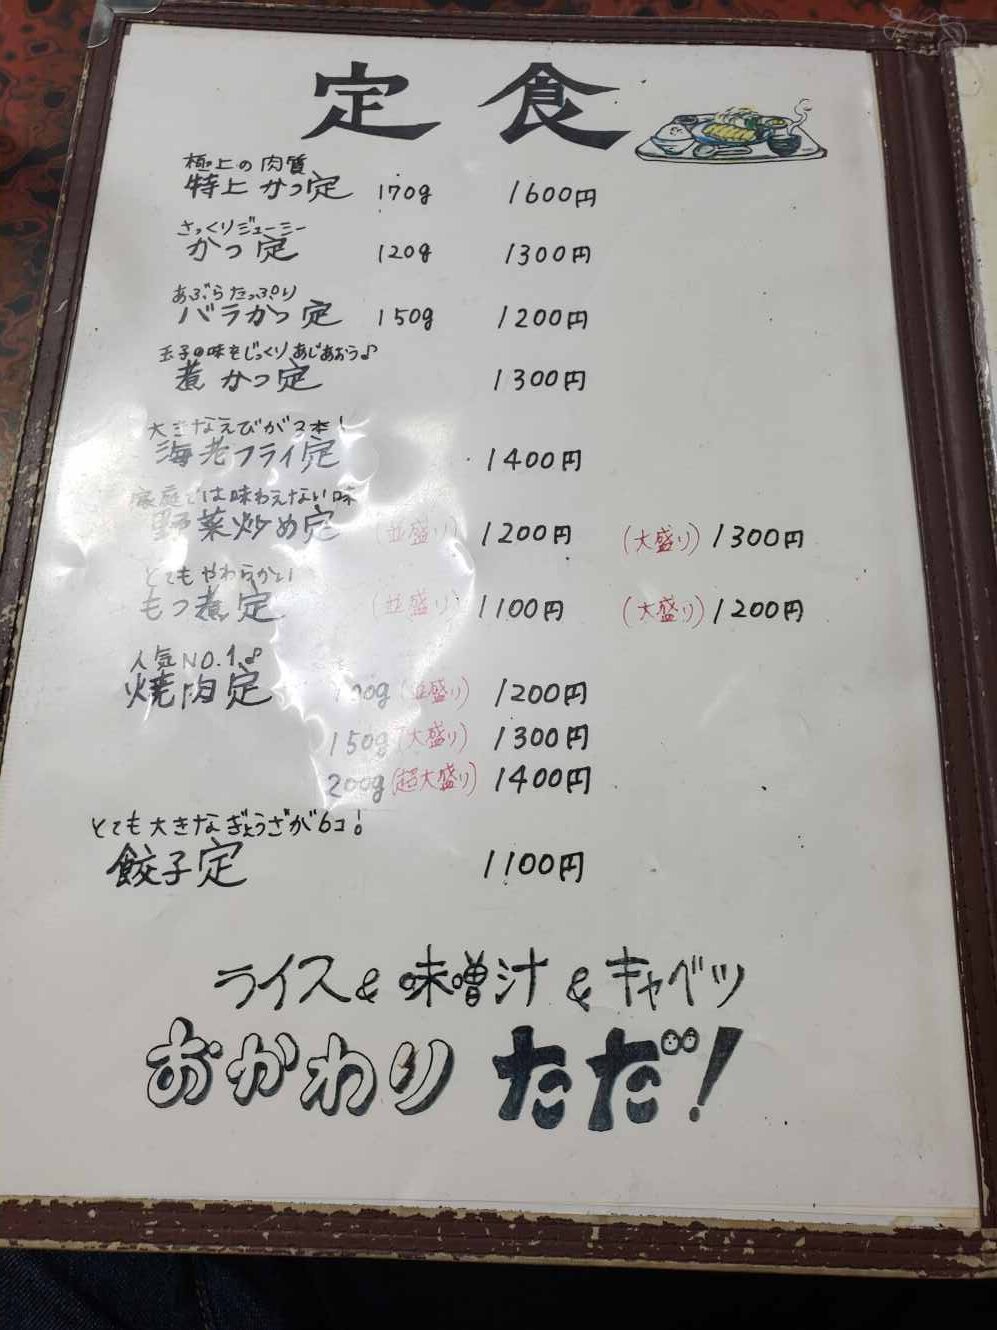 定食
極上の肉質
特上かつ定 170g 1600円
さっくりジューシー
かつ定 120g 1300円
あぶらたっぷり
バラかつ定 150g 1200円
玉子の味をじっくりあじあおう♪
煮かつ定 1300円
大きなえびが3本!
海老フライ定 1400円
家庭では味わえない味
野菜炒め定 (並盛り) 1200円 (大盛り) 1300円
とてもやわらかい
もつ煮定 (並盛り) 1100円 (大盛り) 1200円
人気NO.1♪
焼肉定 100g (並盛り) 1200円
150g (大盛り) 1300円
200g (超大盛り) 1400円
とても大きなぎょうざが6コ!
餃子定 1100円
ライス&味噌汁&キャベツ
おかわりただ!